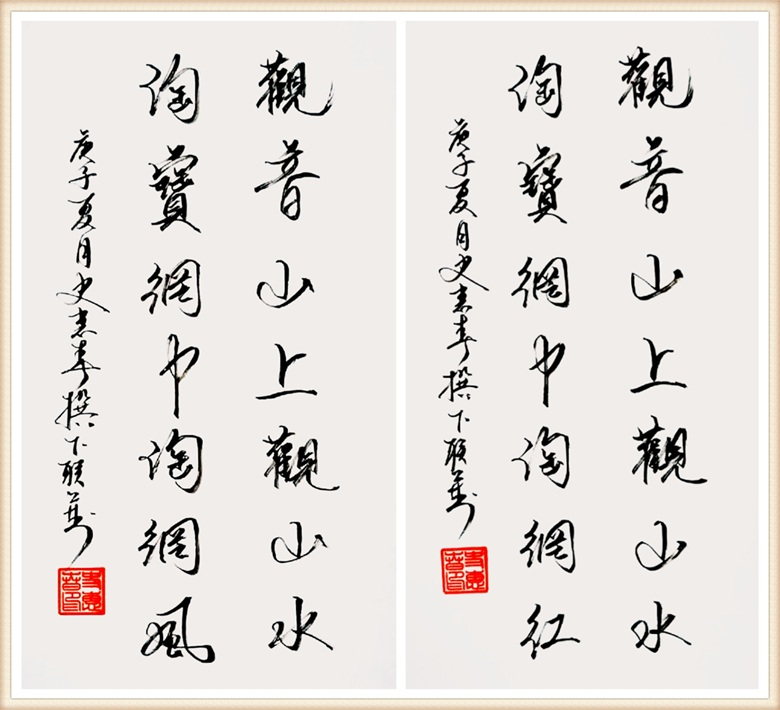 觀音山上觀山水
淘寶網中淘網紅
庚子夏月史志春撰下联并
觀音山上觀山水
淘寶網中淘網風
庚子夏月史志春撰下联并